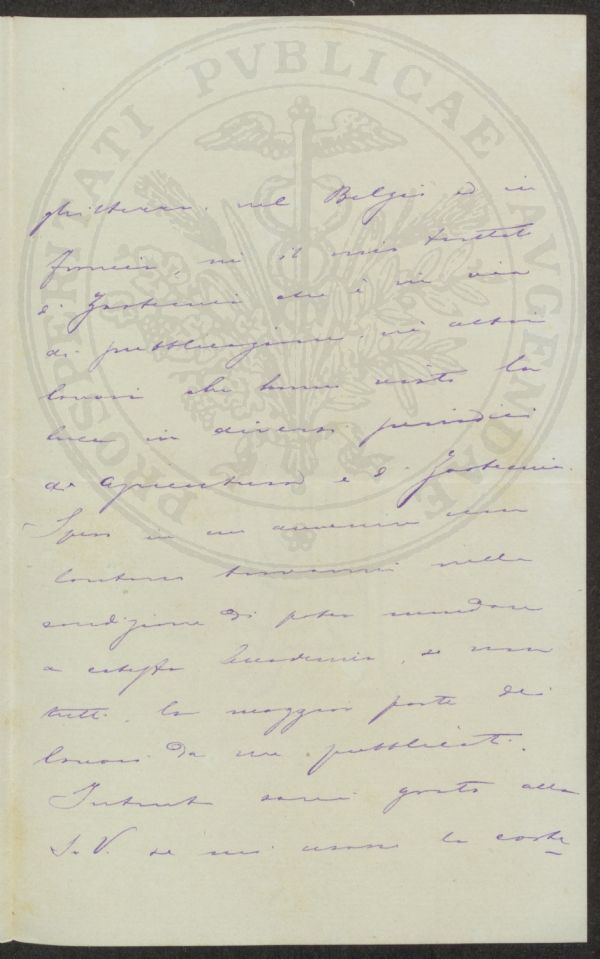 PROSPERITATI PVBLICAE AVGENDAE
ghilterra, nel Belgio ed in
Francia, nè il mio trattato
di Zootecnia che è in via
di pubblicazione, nè altri
lavori che hanno visto la
luce in diversi periodici
di agricoltura e di Zootecnia.
Spero in un avvenire non
lontano trovarmi nella
condizione di poter mandare
a codesta Accademia, se non
tutti, la maggior parte dei
lavori da me pubblicati.
Intanto sarei grato alla
S. V. se mi usasse la corte